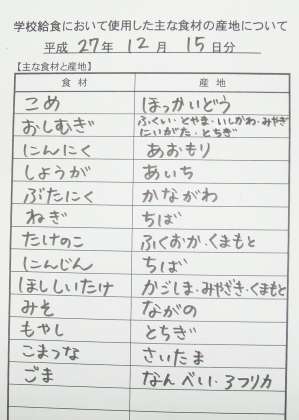 学校給食において使用した主な食材の産地について
平成 27年 12月 15日分
【主な食材と産地】
食材 産地
こめ ほっかいどう
おしむぎ ふくい・とやま・いしかわ・みやぎ
にいがた・とちぎ
にんにく あおもり
しょうが あいち
ぶたにく かながわ
ねぎ ちば
たけのこ ふくおか・くまもと
にんじん ちば
ほししいたけ かごしま・みやざき・くまもと
みそ ながの
もやし とちぎ
こまつな さいたま
ごま なんべい・アフリカ